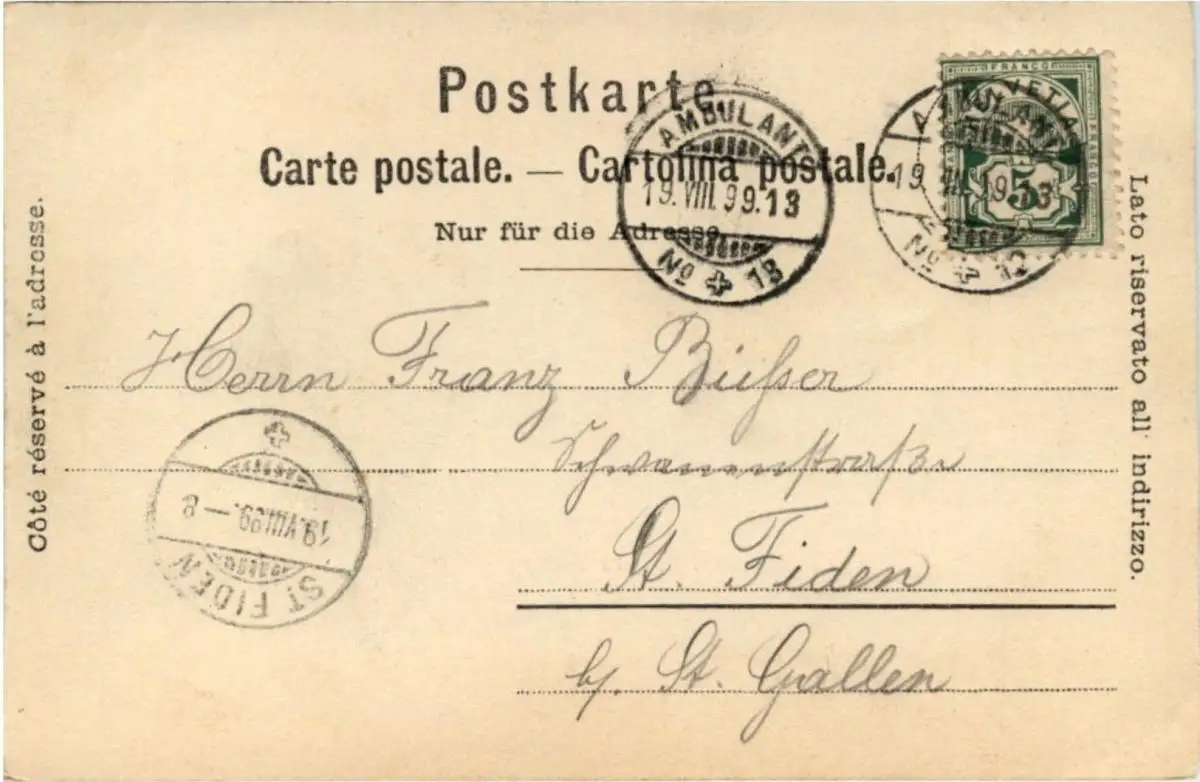 Postkarte
Carte postale. — Cartolina postale.
Nur für die Adresse.
FRANCO
HELVETIA
5
AMBULANT
19. VIII. 99. 13
No 13
AMBULANT
19. VIII. 99. 13
No
Côté réservé à l'adresse.
Lato riservato all' indirizzo.
Herrn Franz Büßer
Schwanenstraße
St. Fiden
b/. St. Gallen
19. VIII. 99. — 8
ST FIDEN